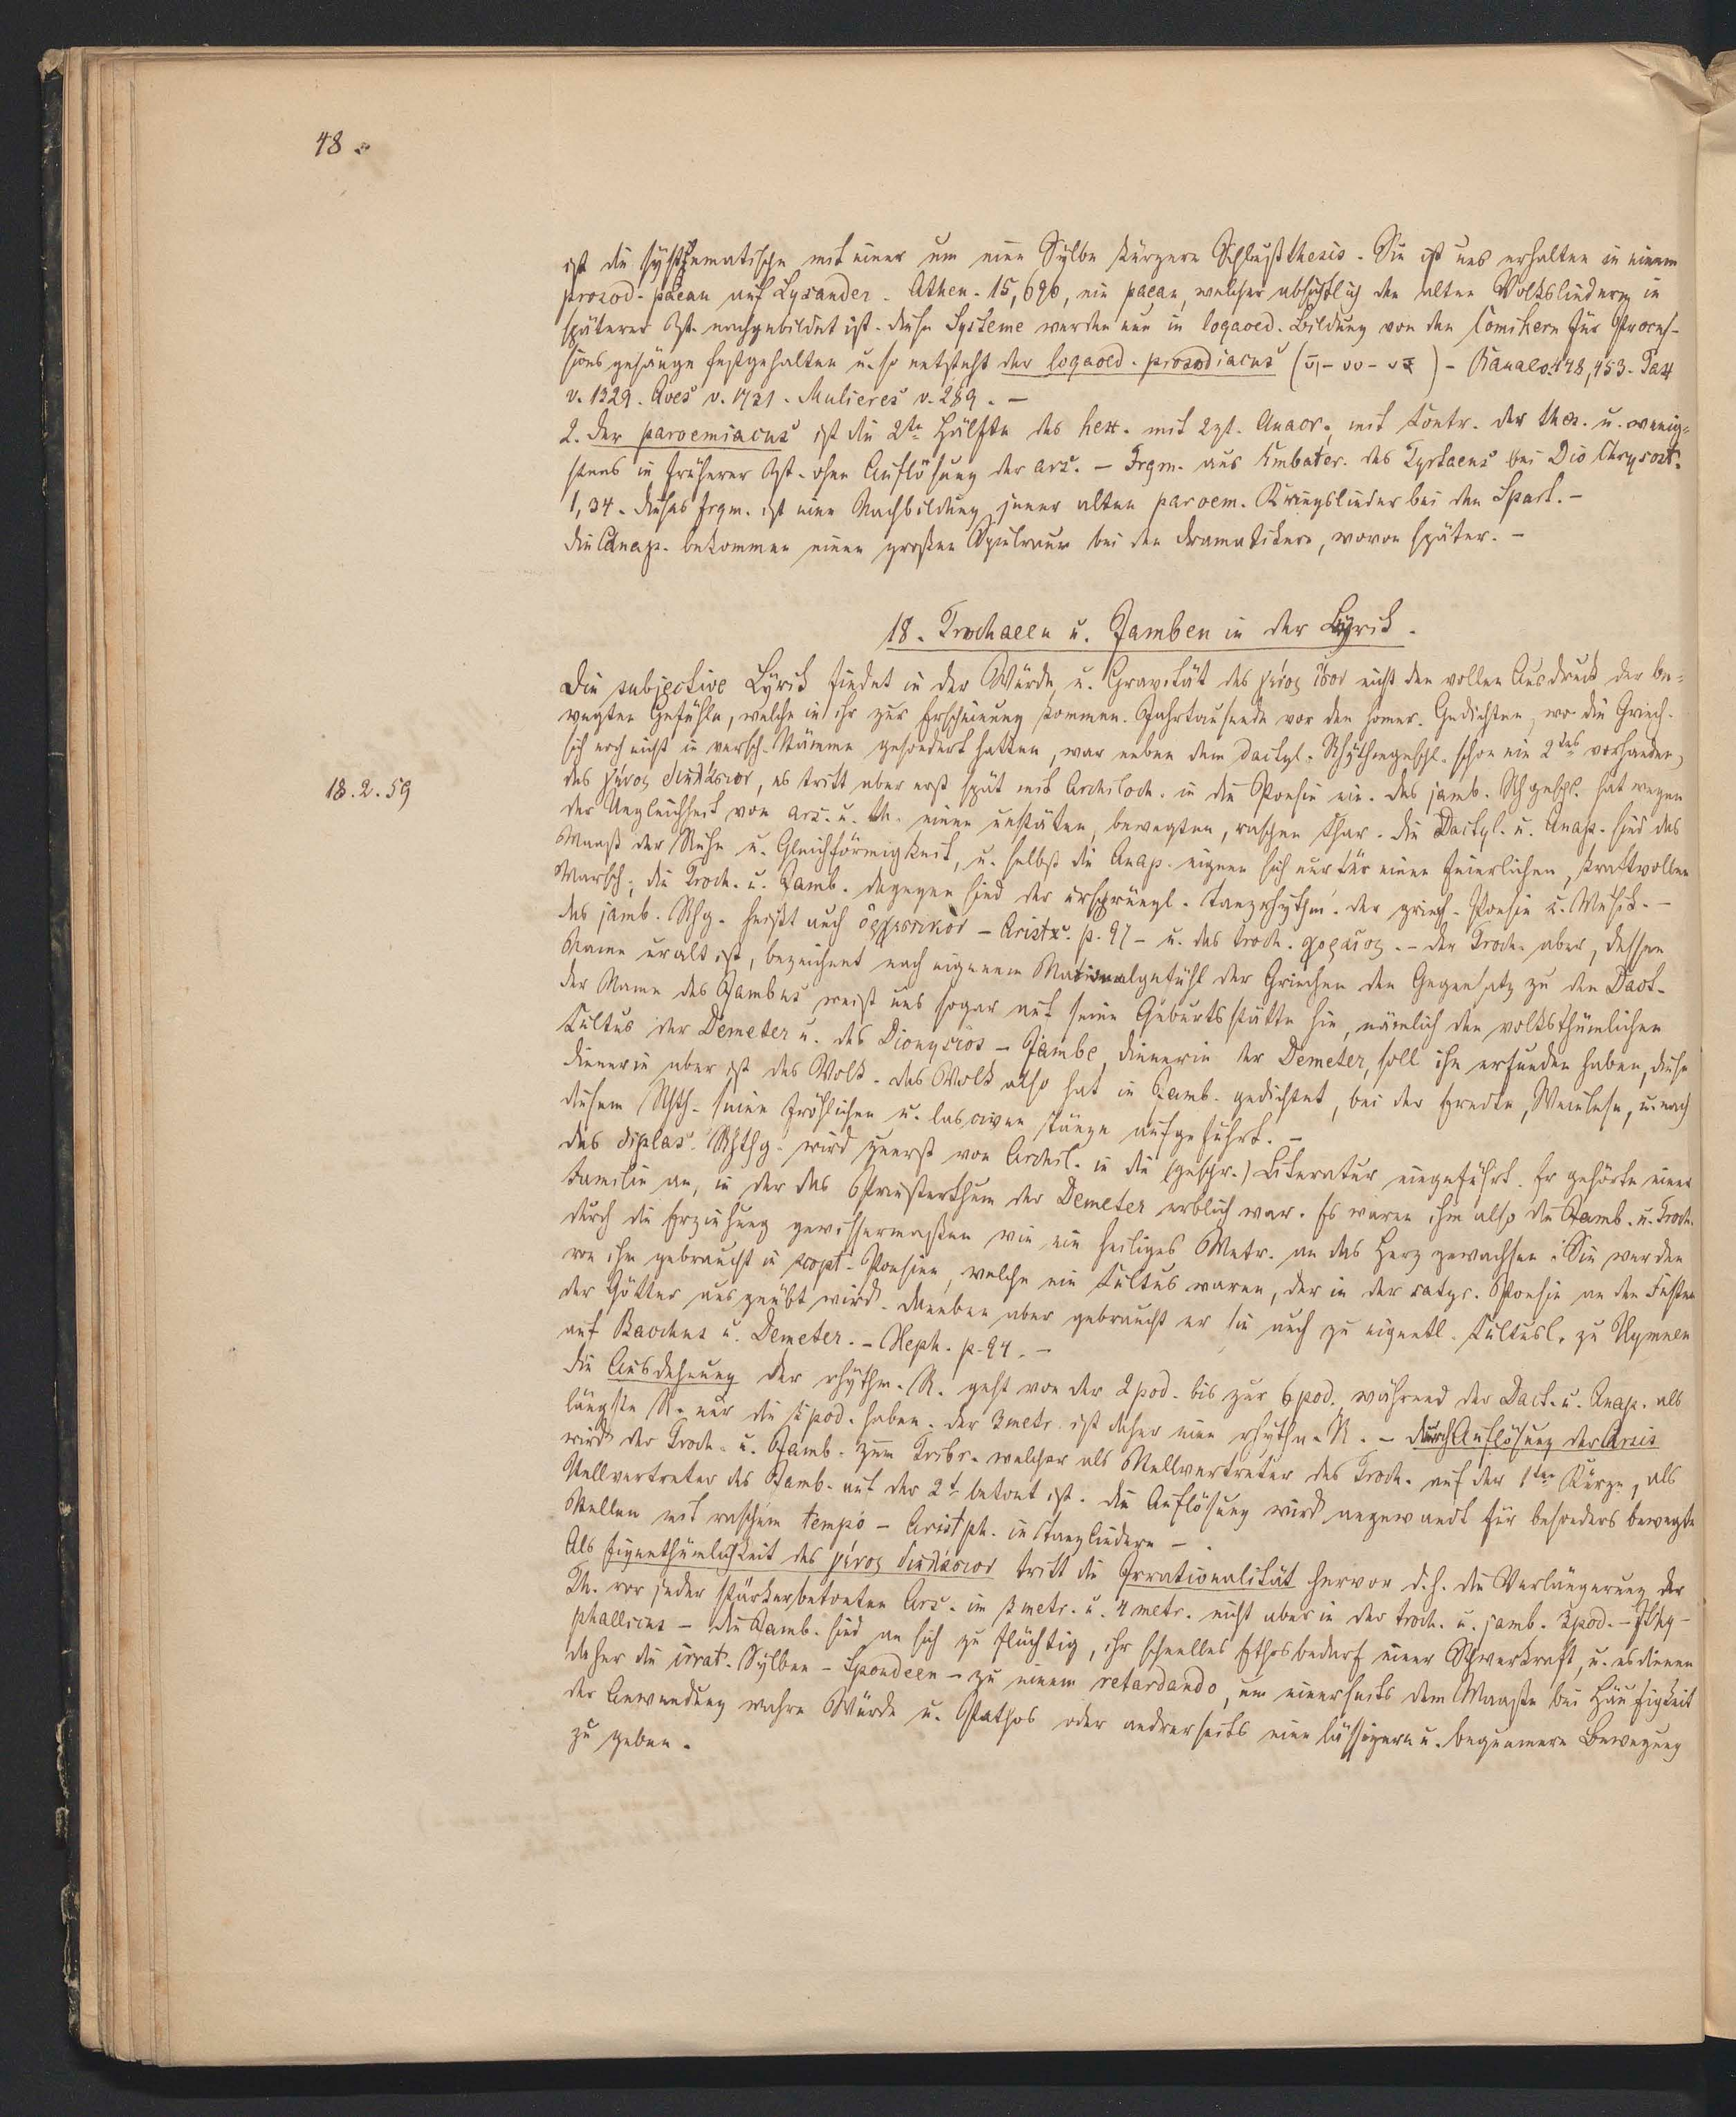 48.
ist die systematische mit einer um eine Sylbe kürzere Schlußthesis. Sie ist uns erhalten in einem
prosod. paean auf Lysander. Athen. 15, 696, ein paean, welcher absichtlich den alten Volksliedern in
späterer Zt. nachgebildet ist. Diese Systeme werden nun in logaoed. Bildung von den Comikern für Proces-
sionsgesänge festgehalten u. so entsteht der logaoed. prosodiacus - Ranae v. 448, 453. Pax
v. 1329. Aves v. 1731. Mulieres v. 289. -
2. Der paroemiacus ist die 2te Hälfte des hex. mit 2zt. Anacr., mit Contr. der thes. u. wenig-
stens in früherer Zt. ohne Auflösung der ars. - Frgm. aus Embater. des Tyrtaeus bei Dio Chrysost.
1, 34. Dieses Frgm. ist eine Nachbildung jener alten paroem. Kriegslieder bei den Spart. -
Die Anap. bekommen einen großen Spielraum bei den Dramatikern, wovon später. -
18. Trochaeen u. Jamben in der Lyrik.
Die subjective Lyrik findet in der Würde u. Gravität des γένος ἴσον nicht den vollen Ausdruck der be-
wegten Gefühle, welche in ihr zur Erscheinung kommen. Jahrtausende vor den homer. Gedichten, wo die Griech.
sich noch nicht in versch. Stämme gesondert hatten, war neben dem dactyl. Rhythmengeschl. schon ein 2tes vorhanden,
18.2.59
das γένος διπλάσιον, es tritt aber erst spät mit Archiloch. in die Poesie ein. Das jamb. Rhgeschl. hat wegen
der Ungleichheit von ars. u. th. einen unstäten, bewegten, raschen Char. Die Dactyl. u. Anap. sind das
Maaß der Ruhe u. Gleichförmigkeit, u. selbst die Anap. eignen sich nur für einen feierlichen, kraftvollen
Marsch; die Troch. u. Jamb. dagegen sind der ursprüngl. Tanzrhythm. der griech. Poesie u. Musik. -
das jamb. Rhg. heißt auch ὀρχηστικὸν - Aristx. p. 97 - u. das troch. χορεῖος. - Der Troch. aber, dessen
Name uralt ist, bezeichnet nach eigenem Nationalgefühl der Griechen den Gegensatz zu den Dact.
Der Name des Jambus weist uns sogar auf seine Geburtsstätte hin, nämlich den volksthümlichen
Cultus der Demeter u. des Dionysios - Jambe, Dienerin der Demeter, soll ihn erfunden haben, diese
Dienerin aber ist das Volk. Das Volk also hat in Jamb. gedichtet, bei der Erndte, Weinlese, u. nach
diesem Rhth. seine fröhlichen u. lasciven Tänze aufgeführt. -
Das diplas. Rhthg. wird zuerst von Archil. in die (geschr.) Literatur eingeführt. Er gehörte einer
Familie an, in der das Priesterthum der Demeter erblich war. Es waren ihm also die Jamb. u. Troch.
durch die Erziehung gewissermaßen wie ein heiliges Metr. an das Herz gewachsen. Sie werden
von ihm gebraucht in scopt. Poesien, welche ein Cultus waren, der in der satyr. Poesie an den Festen
der Götter ausgeübt wird. Daneben aber gebraucht er sie auch zu eigentl. Cultusl., zu Hymnen
auf Bacchus u. Demeter. - Heph. p. 94. -
Die Ausdehnung der rhythm. R. geht von der 2pod. bis zur 6pod., während der Dact. u. Anap. als
längste R. nur die 5pod. haben. Der 3metr. ist daher eine rhythm. R. - Durch Auflösung der Arsis
wird der Troch. u. Jamb. zum Tribr. welcher als Stellvertreter des Troch. auf der 1ten Kürze, als
Stellvertreter des Jamb. auf der 2t betont ist. Die Auflösung wird angewandt für besonders bewegte
Stellen mit raschem tempo - Aristph. in Tanzliedern -.
Als Eigenthümlichkeit des γένος διπλάσιον tritt die Irrationalität hervor d. h. die Verlängerung der
Th. vor jeder stärkerbetonten Ars. im 3metr. u. 4metr. nicht aber in der troch. u. jamb. 3pod. - Ithy-
phallicus - Die Jamb. sind an sich zu flüchtig, ihr schnelles Ethos bedarf einer Schwerkraft, u. es dienen
daher die irrat. Sylben - Spondeen - zu einem retardando, um einerseits dem Maaße bei Häufigkeit
der Anwendung wahre Würde u. Pathos oder andrerseits eine lässigere u. bequemere Bewegung
zu geben.